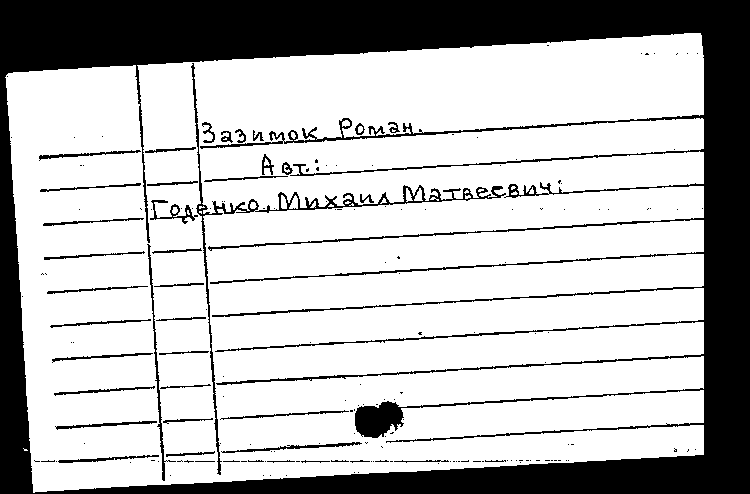 Зазимок. Роман.
Авт.:
Годенко, Михаил Матвеевич: